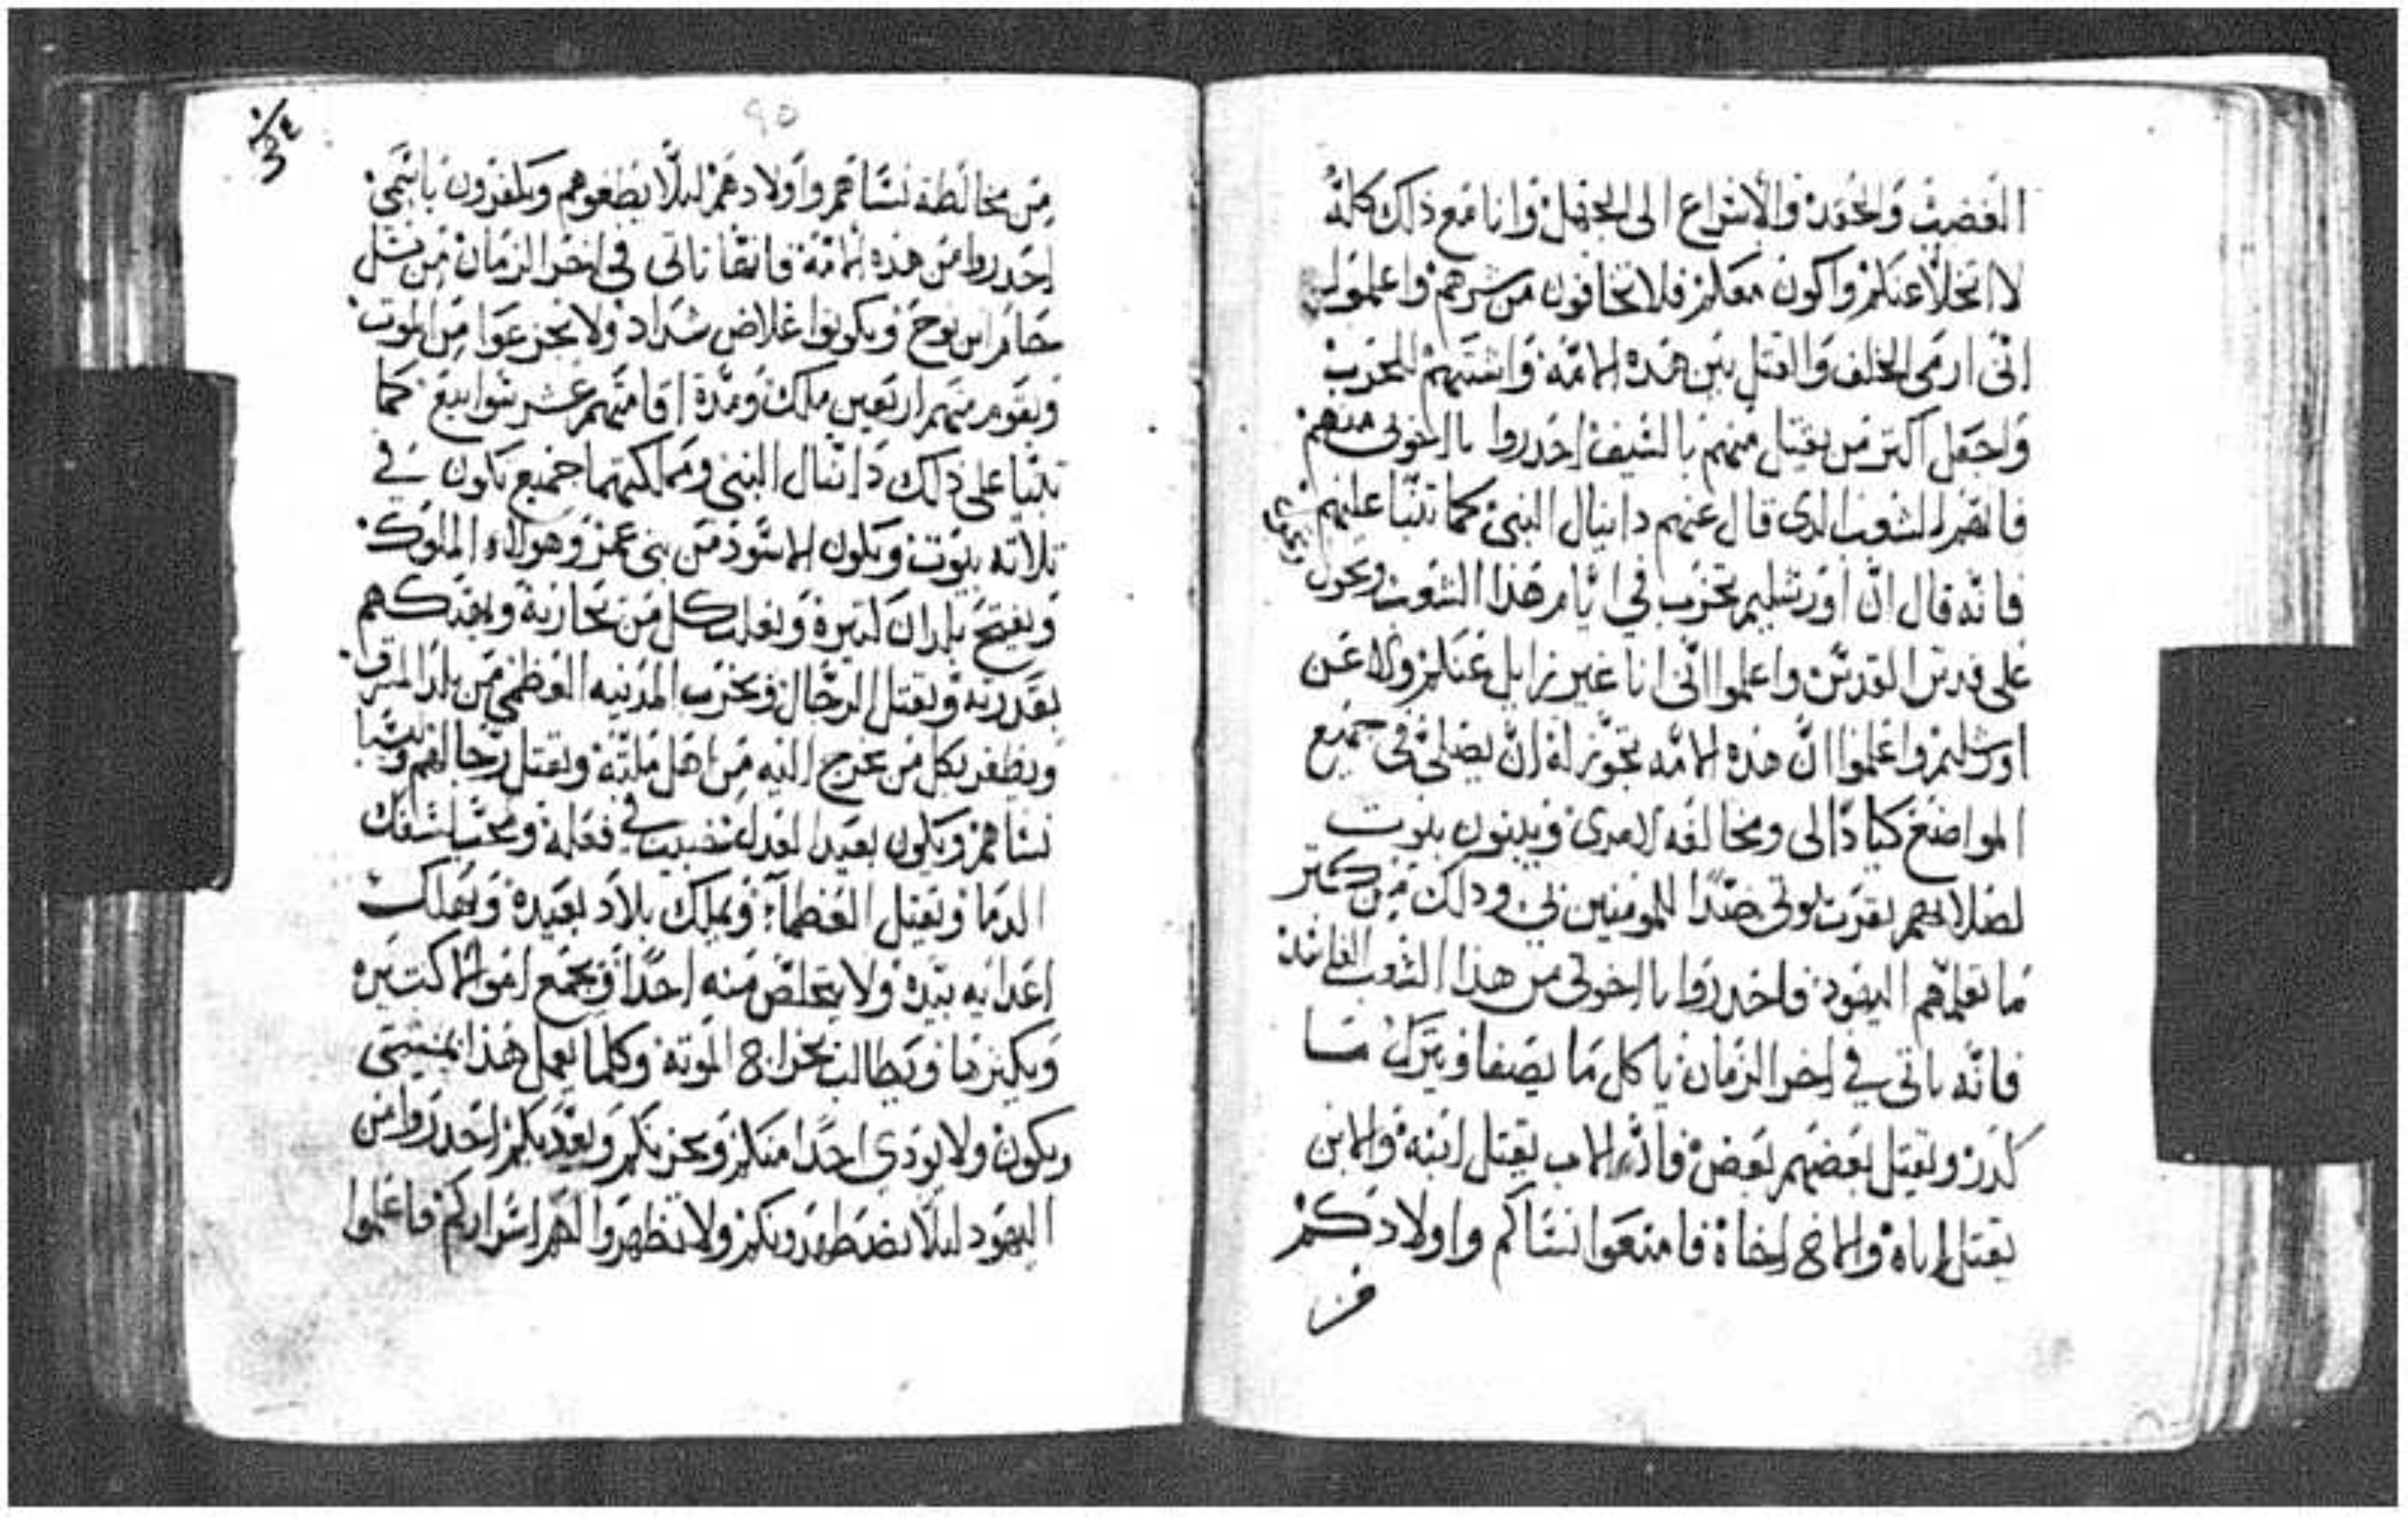 الغضب والحقد والاسراع الى الجهل وانا مع ذلك كله
لا اتخلا عنكم واكون معكم فلا تخافون من شرهم واعلموا
انى ارمى الخلف والقتل بين هذه الامة واشتبهم الحرب
واجعل اكتر من يقتل منهم بالسيف احدروا يا اخوتى منهم
فانهم الشعب الدى قال عنهم دانيال النبى كما تنبا عليهم
فانه قال ان اورشليم تخرب فى ايام هذا الشعب ويحول
على قدس القدس واعلموا انى انا غير زايل عنكم ولا عن
اورشليم واعلموا ان هذه الامه تجوز له ان يصلى فى جميع
المواضع ومخالفه لامرى ويبنون بيوت
لصلاتهم بقرب بيوتى ضدا للمومنين بى ودلك من كتر
ما تعلمهم اليهود فاحدروا يا اخوتى من هذا الشعب
فانه ياتى فى اخر الزمان ياكل ما يصفا ويترك ما
كدر ويقتل بعضهم بعض الاب يقتل ابنه والابن
يقتل اباه والاخ اخاه فامنعوا نساكم واولادكم
من
90
من مخالطة نساهم واولادهم ليلا يطغوهم ويكفرون باسمى
احدروا من هذه الامة فانها تاتى فى اخر الزمان من نسل
حام ابن نوح ويكونوا غلاض شداد ولا يجزعوا من الموت
ويقوم منهم اربعين ملك ومدة اقامتهم عشر سوابيع كما
تنبا على ذلك دانيال النبى ومملكتهما جميع تكون فى
تلاته بيوت ويكون الاسود من بنى عمر وهولاء الملوك
ويفتح بلدان كتيرة ويغلب كل من يحاربه
بقدرته ويقتل الرجال ويخرب المدينه العظمى من بلد المشرق
ويظفر بكل من يخرج اليه من اهل ملته ويقتل رجالهم
نساهم ويكون بعيد العدل فى فعله سفك
الدما ويقتل العظماء ويملك بلاد بعيدة ويهلك
اعدايه بيده ولا يتخلص منه احدا ويجمع اموالا كتيره
ويكنزها ويطالب بخراج الموته وكلما يعمل هذا بمشيتى
ويكون ولا يودى احدا منكم ويحزنكم احدروا من
اليهود ليلا يضطهدونكم ولا تظهروا لهم اسراركم فاعلموا